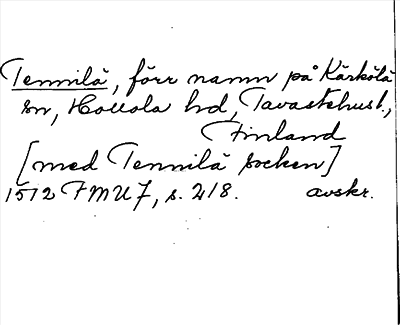 Tennilä, förr namn på Kärkölä
sn, Hollola hd, Tavastehusl.,
Finland
[med Tennilä socken]
1512 FMU 7, s. 218. avskr.